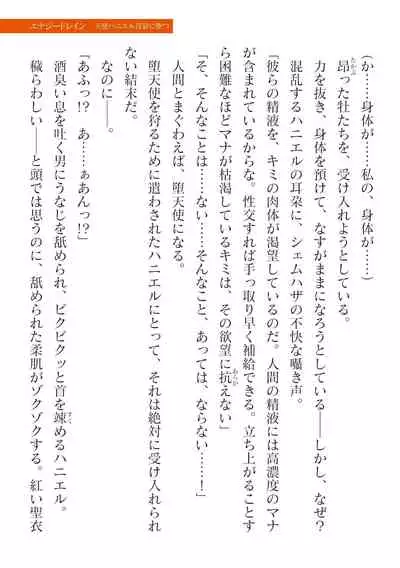 エナジードレイン　天使ハニエル淫獄に堕つ
(か……身体が……私の、身体が……)
昂った牡たちを、受け入れようとしている。
力を抜き、身体を預けて、なすがままになろうとしている――しかし、なぜ?
混乱するハニエルの耳朶に、シェムハザの不快な囁き声。
「彼らの精液を、キミの肉体が渇望しているのだ。人間の精液には高濃度のマナ
が含まれているからな。性交すれば手っ取り早く補給できる。立ち上がることす
ら困難なほどマナが枯渇しているキミは、その欲望に抗えない」
「そ、そんなことは……ない……そんなこと、あっては、ならない……!」
人間とまぐわえば、堕天使になる。
堕天使を狩るために遣わされたハニエルにとって、それは絶対に受け入れられ
ない結末だ。
なのに――。
「あふっ!?　あ……ぁあんっ!?」
酒臭い息を吐く男にうなじを舐められ、ビクビクッと首を竦めるハニエル。
穢らわしい――と頭では思うのに、舐められた柔肌がゾクゾクする。紅い聖衣